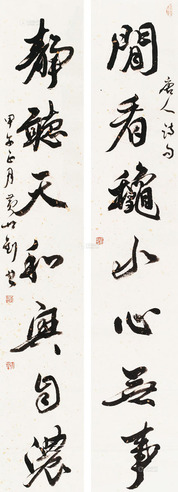 閒看龝山心無事
唐人詩句
靜聽天和興自濃
甲午正月